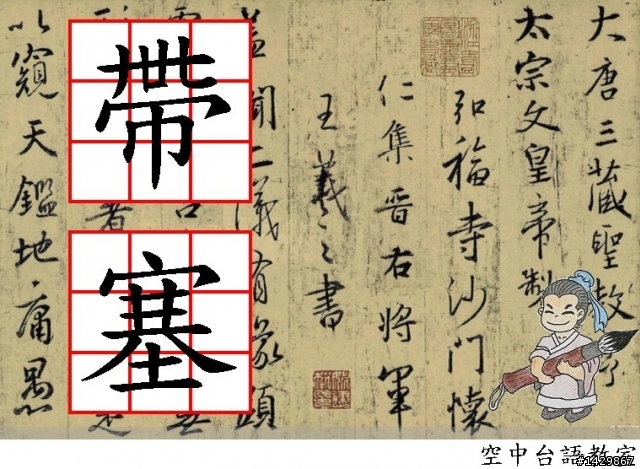 大唐三藏聖教序
太宗文皇帝製
弘福寺沙門懷
仁集晉右將軍
王羲之書
蓋聞二儀有象顯
以窺天鑑地庸愚
帶
塞
空中台語教室
#1429867